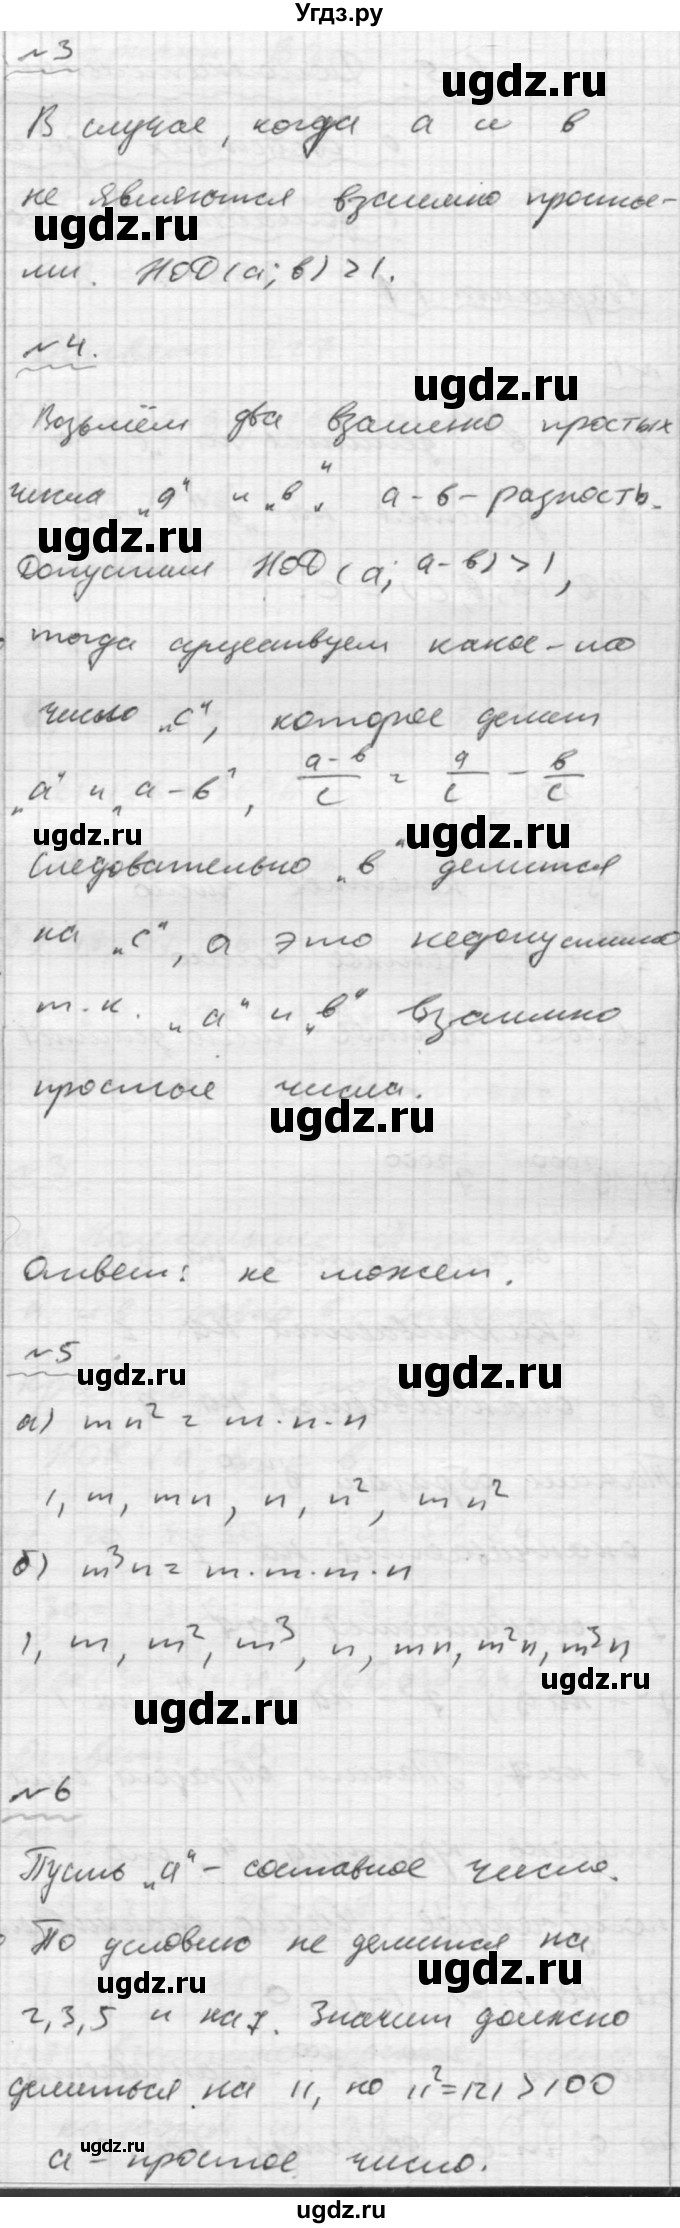 Угдз.ру
№3
ugdz.ru
В случае, когда а и в
не являются взаимно просты-
ugdz.ru
ми. НОД(а; в) > 1.
№4.
ugdz.ru
Возьмём два взаимно простых
числа „а“ и „в“, а-в - разность.
ugdz.ru
Допустим НОД (а; а-в) > 1,
тогда существует какое-то
число „с“, которое делит
„а“ и „а-в“, (а-в)/с = а/с - в/с
ugdz.ru ugdz.ru
Следовательно „в“ делится
на „с“, а это недопустимо
т.к. „а“ и „в“ взаимно
простые числа.
ugdz.ru
Ответ: не может.
№5
ugdz.ru ugdz.ru
а) mn² = m·n·n
1, m, mn, n, n², mn²
б) m³n = m·m·m·n
1, m, m², m³, n, mn, m²n, m³n
ugdz.ru
ugdz.ru
№6
Пусть „а“ - составное число.
По условию не делится на
ugdz.ru ugdz.ru
2,3,5 и на 7. Значит должно
делиться на 11, но 11²=121 > 100
ugdz.ru
а - простое число.
ugdz.ru